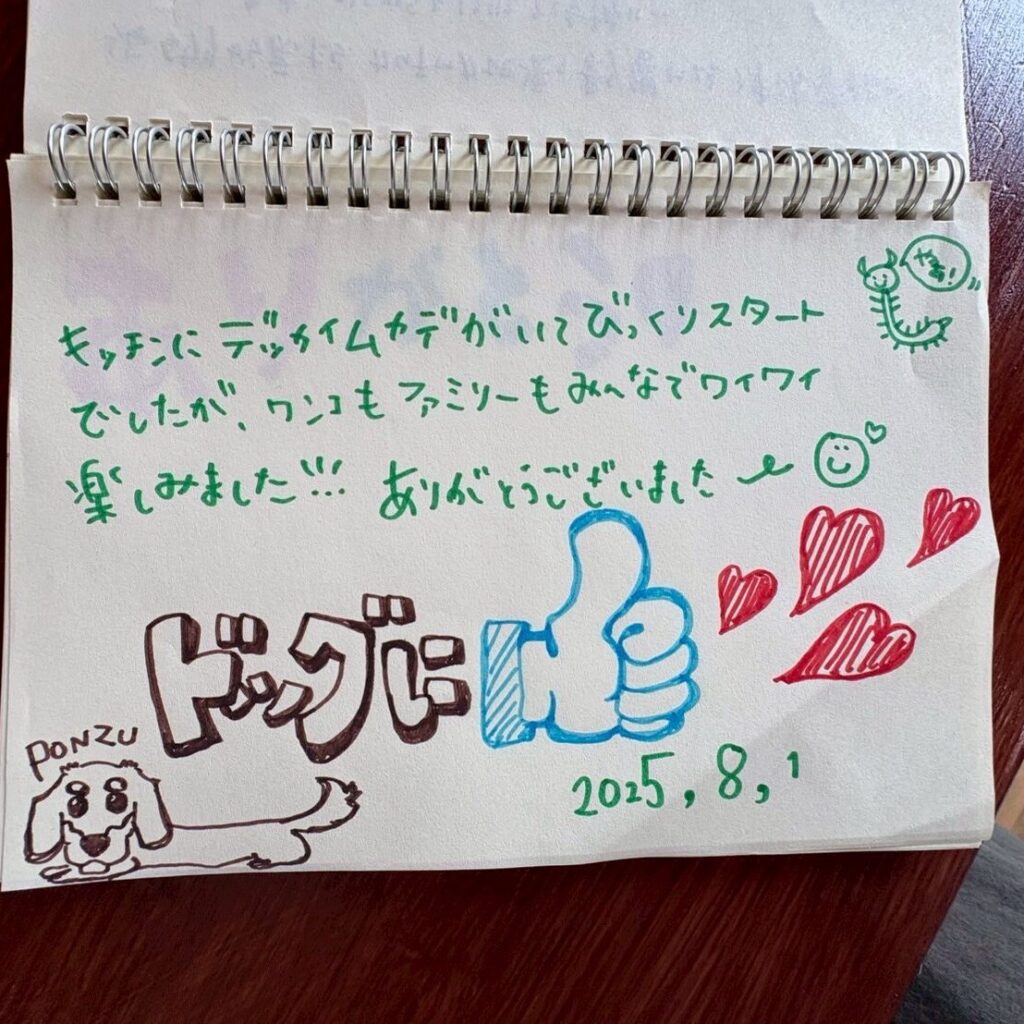 やぁ!
キッチンにデッカイムカデがいてびっくりスタート
でしたが、ワンコもファミリーもみんなでワイワイ
楽しみました!!! ありがとうございました
ドッグに
PONZU
2025,8,1